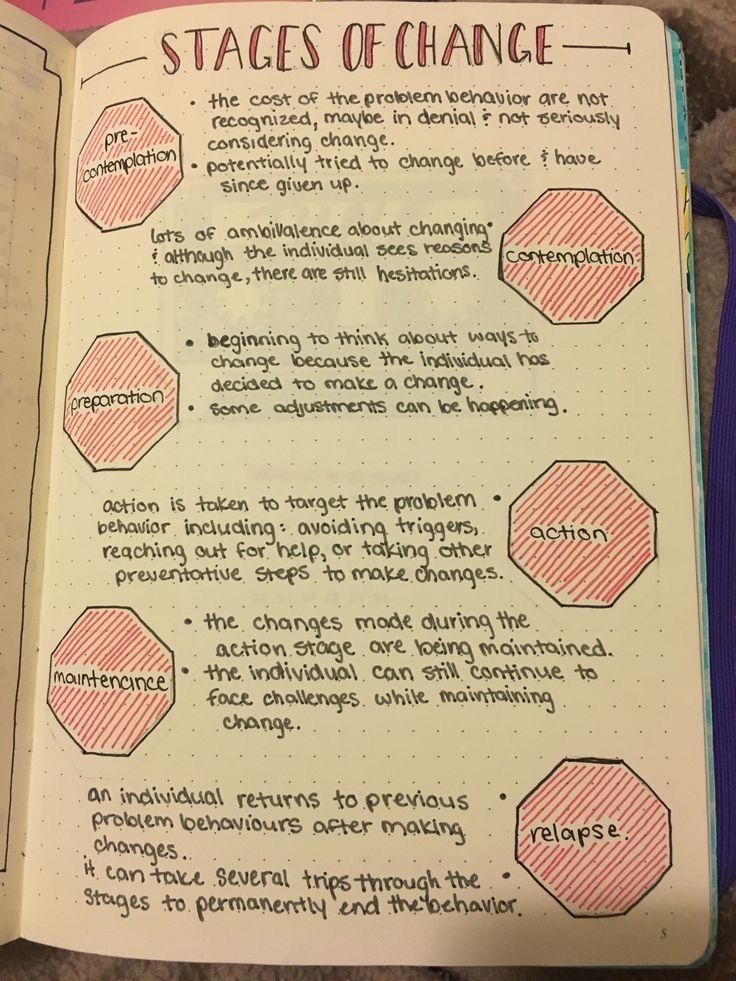 STAGES OF CHANGE
pre-
contemplation
• the cost of the problem behavior are not
recognized, maybe in denial & not seriously
considering change.
• potentially tried to change before & have
since given up.
lots of ambivalence about changing •
& although the individual sees reasons
to change, there are still hesitations.
contemplation
preparation
• beginning to think about ways to
change because the individual has
decided to make a change.
• some adjustments can be happening.
action is taken to target the problem •
behavior including: avoiding triggers,
reaching out for help, or taking other
preventative steps to make changes.
action
maintenance
• the changes made during the
action stage are being maintained.
• the individual can still continue to
face challenges while maintaining
change.
an individual returns to previous •
problem behaviours after making
changes.
it can take several trips through the •
stages to permanently end the behavior.
relapse.
5